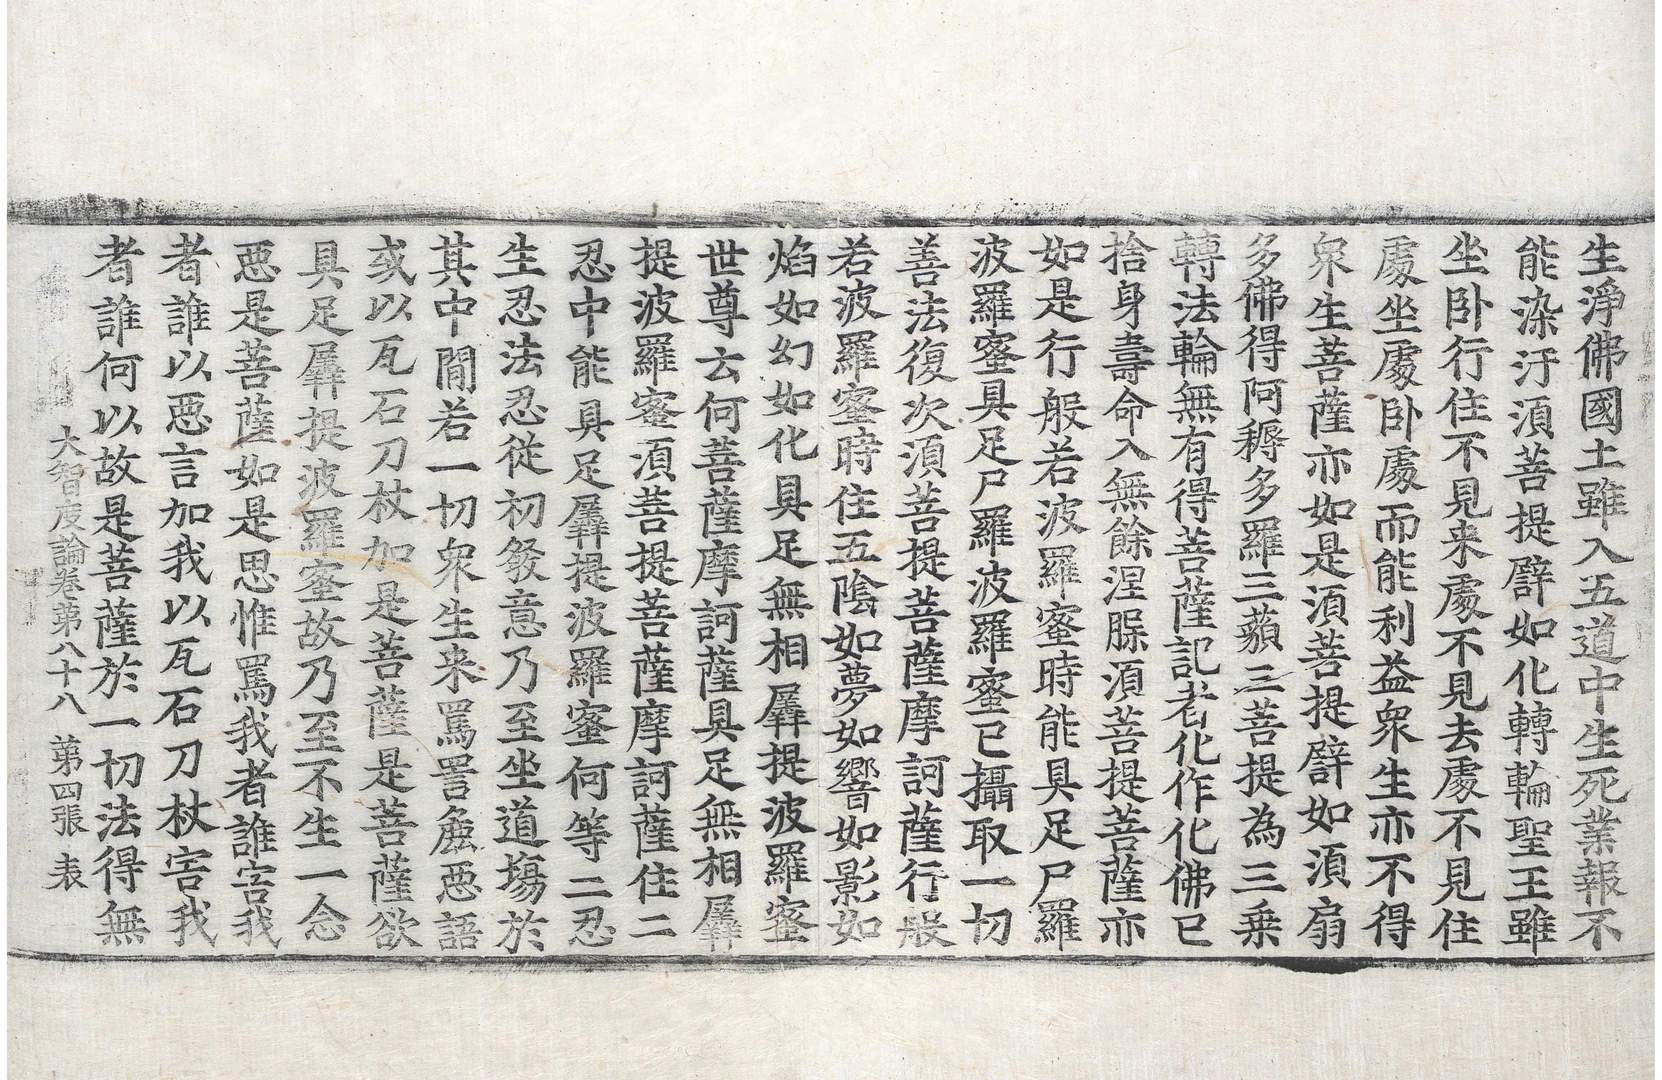 生淨佛國土雖入五道中生死業報不
能染汙湏菩提譬如化轉輪聖王雖
坐卧行住不見来處不見去處不見住
處坐處卧處而能利益衆生亦不得
衆生菩薩亦如是湏菩提譬如湏扇
多佛得阿耨多羅三藐三菩提為三乗
轉法輪無有得菩薩記者化作化佛已
捨身壽命入無餘涅縣湏菩提菩薩亦
如是行般若波羅蜜時能具足尸羅
波羅蜜具足尸羅波羅蜜已攝取一切
善法復次湏菩提菩薩摩訶薩行般
若波羅蜜時住五陰如夢如響如影如
焰如幻如化具足無相羼提波羅蜜
世尊云何菩薩摩訶薩具足無相羼
提波羅蜜湏菩提菩薩摩訶薩住二
忍中能具足羼提波羅蜜何等二忍
生忍法忍從初發意乃至坐道場於
其中閒若一切衆生来罵詈麁惡語
或以瓦石刀杖加是菩薩是菩薩欲
具足羼提波羅蜜故乃至不生一念
惡是菩薩如是思惟罵我者誰害我
者誰以惡言加我以瓦石刀杖害我
者誰何以故是菩薩於一切法得無
大智度論卷第八十八 第四張 表